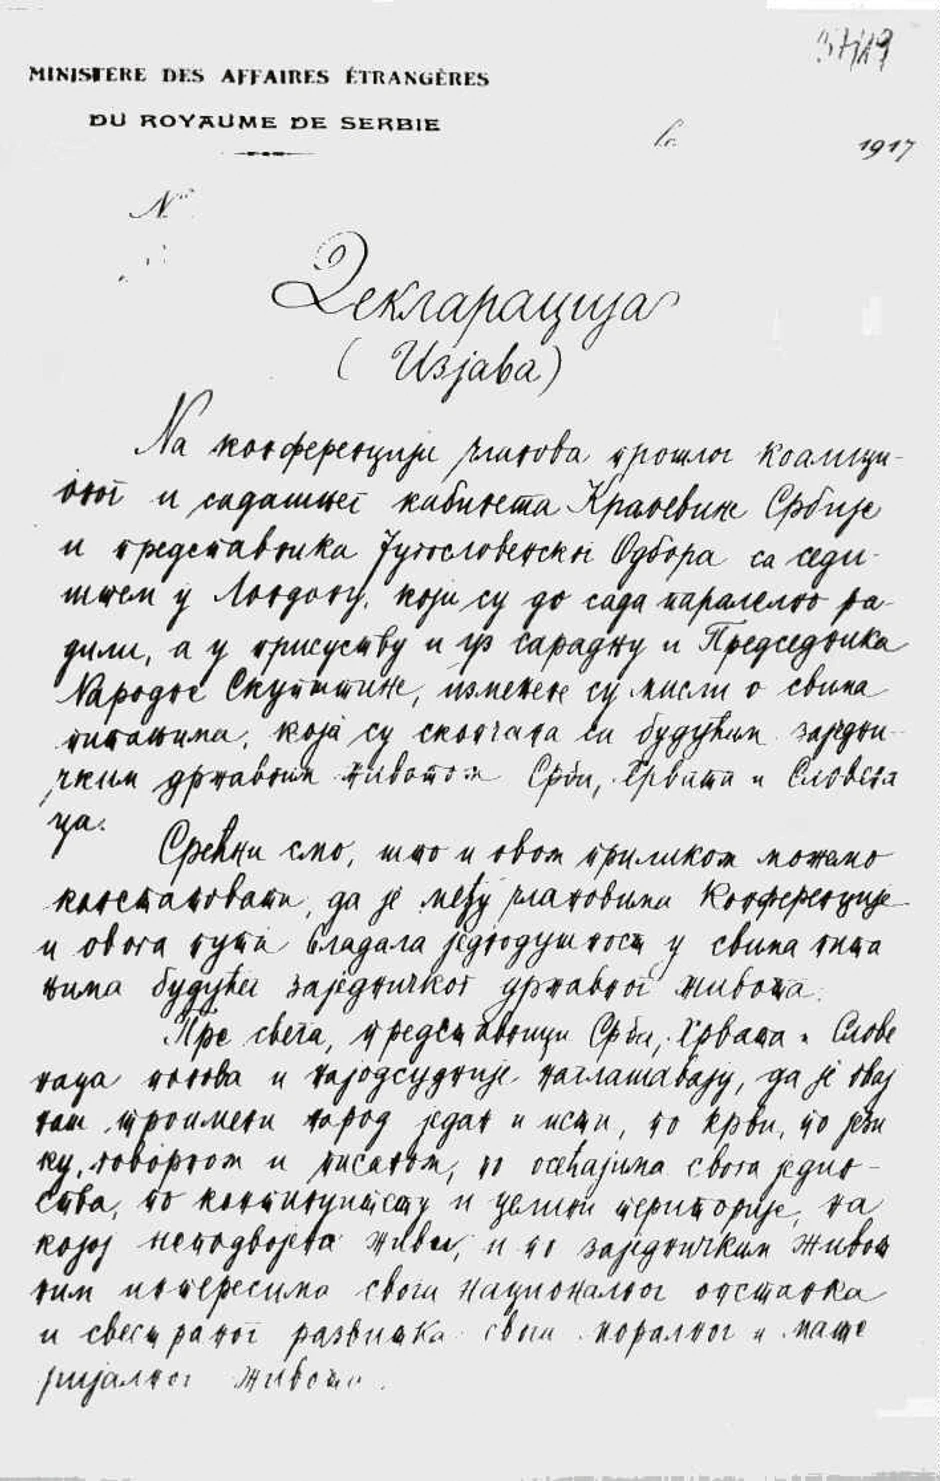 MINISTERE DES AFFAIRES ÉTRANGÈRES
DU ROYAUME DE SERBIE
le 1917
N°
Декларација
(Изјава)
На конференцији чланова прошлог коалици-
оног и садашњег кабинета Краљевине Србије
и представника Југословенског Одбора са седи-
штем у Лондону, који су до сада паралелно ра-
дили, а у присуству и уз сарадњу и Председника
Народне Скупштине, измењене су мисли о свима
питањима, која су скопчана са будућим заједни-
чким државним животом Срба, Хрвата и Словена
ца.
Срећни смо, што и овом приликом можемо
констатовати, да је међу члановима Конференције
и овога пута владала једнодушност у свима пита
њима будућег заједничког државног живота.
Пре свега, представници Срба, Хрвата и Слове
наца понова и најодсудније наглашавају, да је овај
наш троимени народ један и исти, по крви, по јези
ку, говорном и писаном, по осећајима свога једин-
ства, по континуитету и целини територије, на
којој неподвојено живи, и по заједничким живот
ним интересима свога националног опстанка
и свестраног развитка свога моралног и мате
ријалног живота.